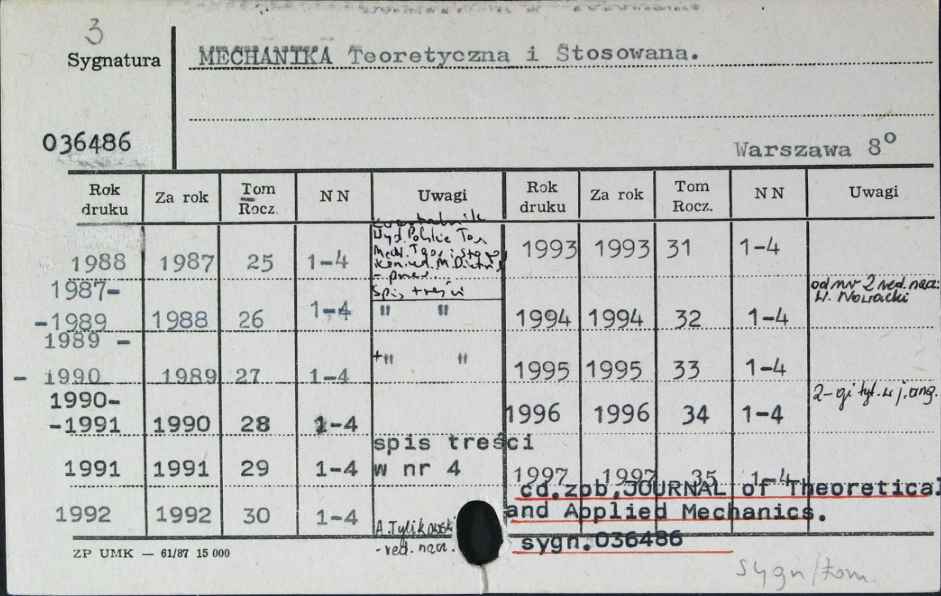 3
Sygnatura
MECHANIKA Teoretyczna i Stosowana.
036486
Warszawa 8°
Rok druku Za rok Tom Rocz. NN Uwagi Rok druku Za rok Tom Rocz. NN Uwagi
kwartalnik
Wyd. Polskie Tow.
Mech. Teor. i Stos.
1988 1987 25 1-4
Spis treści
1993 1993 31 1-4
1987-
-1989 1988 26 1-4 " "
od nr 2 red. nacz.
W. Nowacki
1994 1994 32 1-4
1989 -
- 1990 1989 27 1-4 +" "
1995 1995 33 1-4
1990-
-1991 1990 28 1-4
2-gi tyt. w j. ang.
1996 1996 34 1-4
spis treści
1991 1991 29 1-4 w nr 4
1997 1997 35 1-4
1992 1992 30 1-4
A. Tylikowski
-red. nacz.
cd.zob.JOURNAL of Theoretical
and Applied Mechanics.
sygn.036486
ZP UMK — 61/87 15 000
sygn/tom.